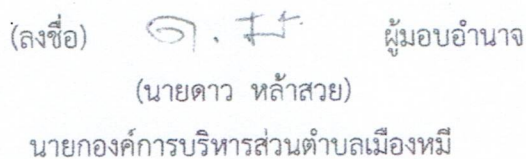 (ลงชื่อ) ผู้มอบอำนาจ
(นายดาว หล้าสวย)
นายกองค์การบริหารส่วนตำบลเมืองหมี